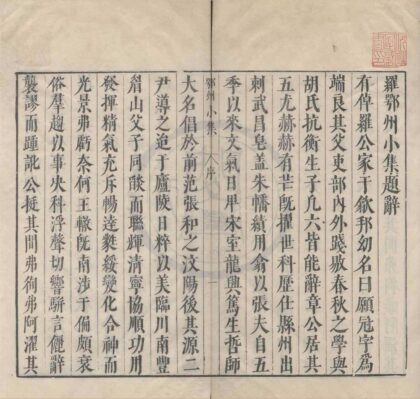 羅鄂州小集題辭
有偉羅公家于歙邦幼名曰願冠字爲
端良其父吏部內外踐敭春秋之學與
胡氏抗衡生子凡六皆能辭章公居其
五尤赫赫有芒既擢世科歷仕縣州出
刺武昌皂盖朱幡績用俞以張夫自五
季以來文氣日卑宋室龍興篤生哲師
鄂州小集 序 一
大名倡於前范張和之汶陽後其源二
尹導之迨于廬陵日粹以美臨川南豐
眉山父子同燄而聯輝清寧協順功用
發揮精氣充斥暢達㽔綏變化合神而
光景弗虧奈何王轍既南涉于偏頗衰
俗羣趨以事央科浮聲切響駢言儷辭
襲謬而踵訛公挺其間弗徇弗阿濯其